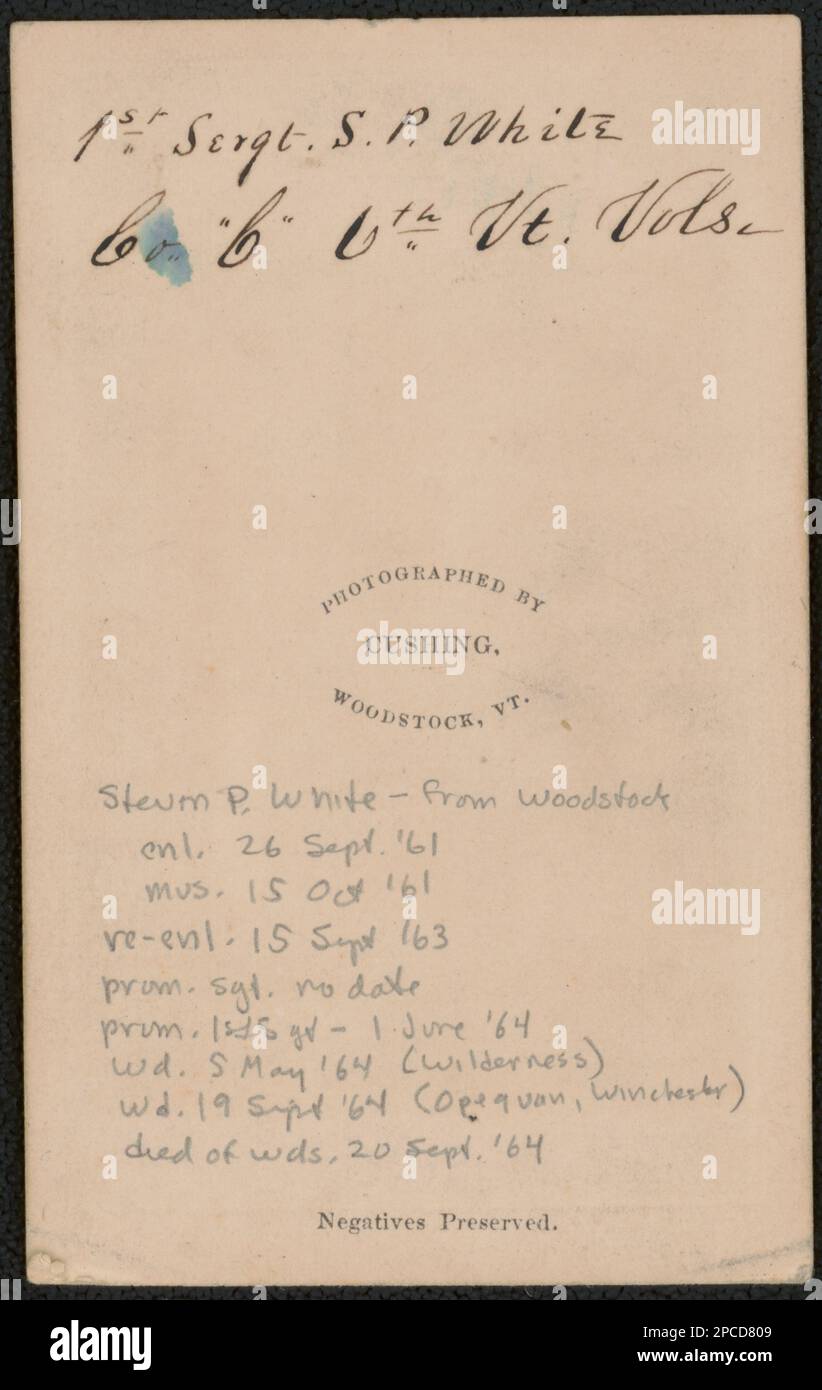 1st Sergt. S. P. White
Co. "C" 6th Vt. Vols.
PHOTOGRAPHED BY
CUSHING,
WOODSTOCK, VT.
P. White – from Woodstock
enl. 26 Sept. '61
mus. 15 Oct '61
re-enl. 15 Sept '63
prom. sgt. no date
prom. 1st Sgt – 1 June '64
wd. 5 May '64 (Wilderness)
wd. 19 Sept '64 (Opequan, Winchester)
died of wds. 20 Sept. '64
Negatives Preserved.
alamy
Image ID: 2PCD809
www.alamy.com